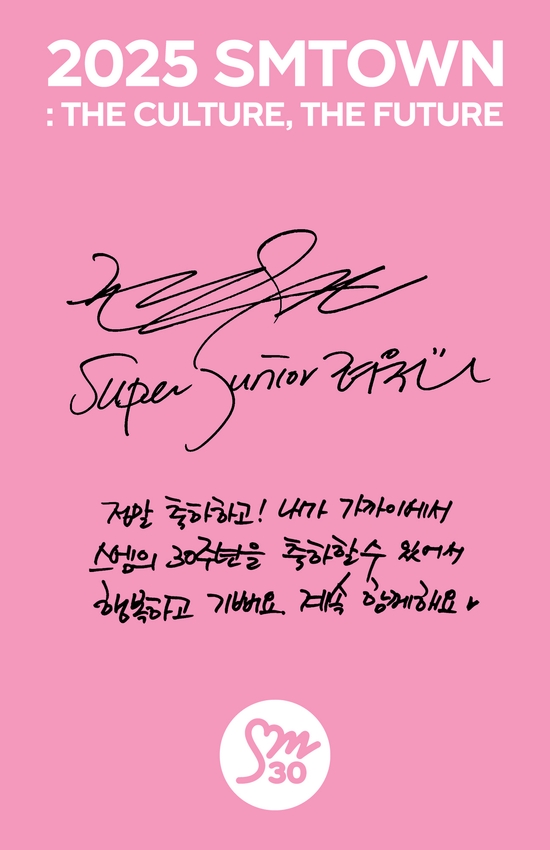 2025 SMTOWN
: THE CULTURE, THE FUTURE
Super Junior 려욱
정말 축하하고! 내가 가까이에서
스엠의 30주년을 축하할수 있어서
행복하고 기뻐요. 계속 함께해요♥
Sm
30